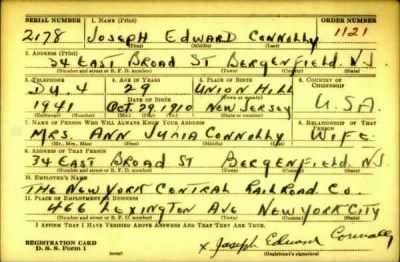 SERIAL NUMBER 1. NAME (Print) ORDER NUMBER
2178 JOSEPH EDWARD CONNOLLY 1121
(First) (Middle) (Last)
2. ADDRESS (Print)
34 EAST BROAD ST BERGENFIELD. N.J.
(Number and street or R. F. D. number) (Town) (County) (State)
3. TELEPHONE 4. AGE IN YEARS 5. PLACE OF BIRTH 6. COUNTRY OF CITIZENSHIP
DU. 4 29 UNION HILL
DATE OF BIRTH (Town or county)
1941 OCT. 29, 1910 NEW JERSEY U.S.A.
(Exchange) (Number) (Mo.) (Day) (Yr.) (State or country)
7. NAME OF PERSON WHO WILL ALWAYS KNOW YOUR ADDRESS 8. RELATIONSHIP OF THAT PERSON
MRS. ANN JULIA CONNOLLY WIFE
(Mr., Mrs., Miss) (First) (Middle) (Last)
9. ADDRESS OF THAT PERSON
34 EAST BROAD ST BERGENFIELD. N.J.
(Number and street or R. F. D. number) (Town) (County) (State)
10. EMPLOYER'S NAME
THE NEW YORK CENTRAL RAILROAD CO.
11. PLACE OF EMPLOYMENT OR BUSINESS
466 LEXINGTON AVE NEW YORK CITY
(Number and street or R. F. D. number) (Town) (County) (State)
I AFFIRM THAT I HAVE VERIFIED ABOVE ANSWERS AND THAT THEY ARE TRUE.
REGISTRATION CARD
D. S. S. Form 1 x Joseph Edward Connolly
(Registrant's signature)